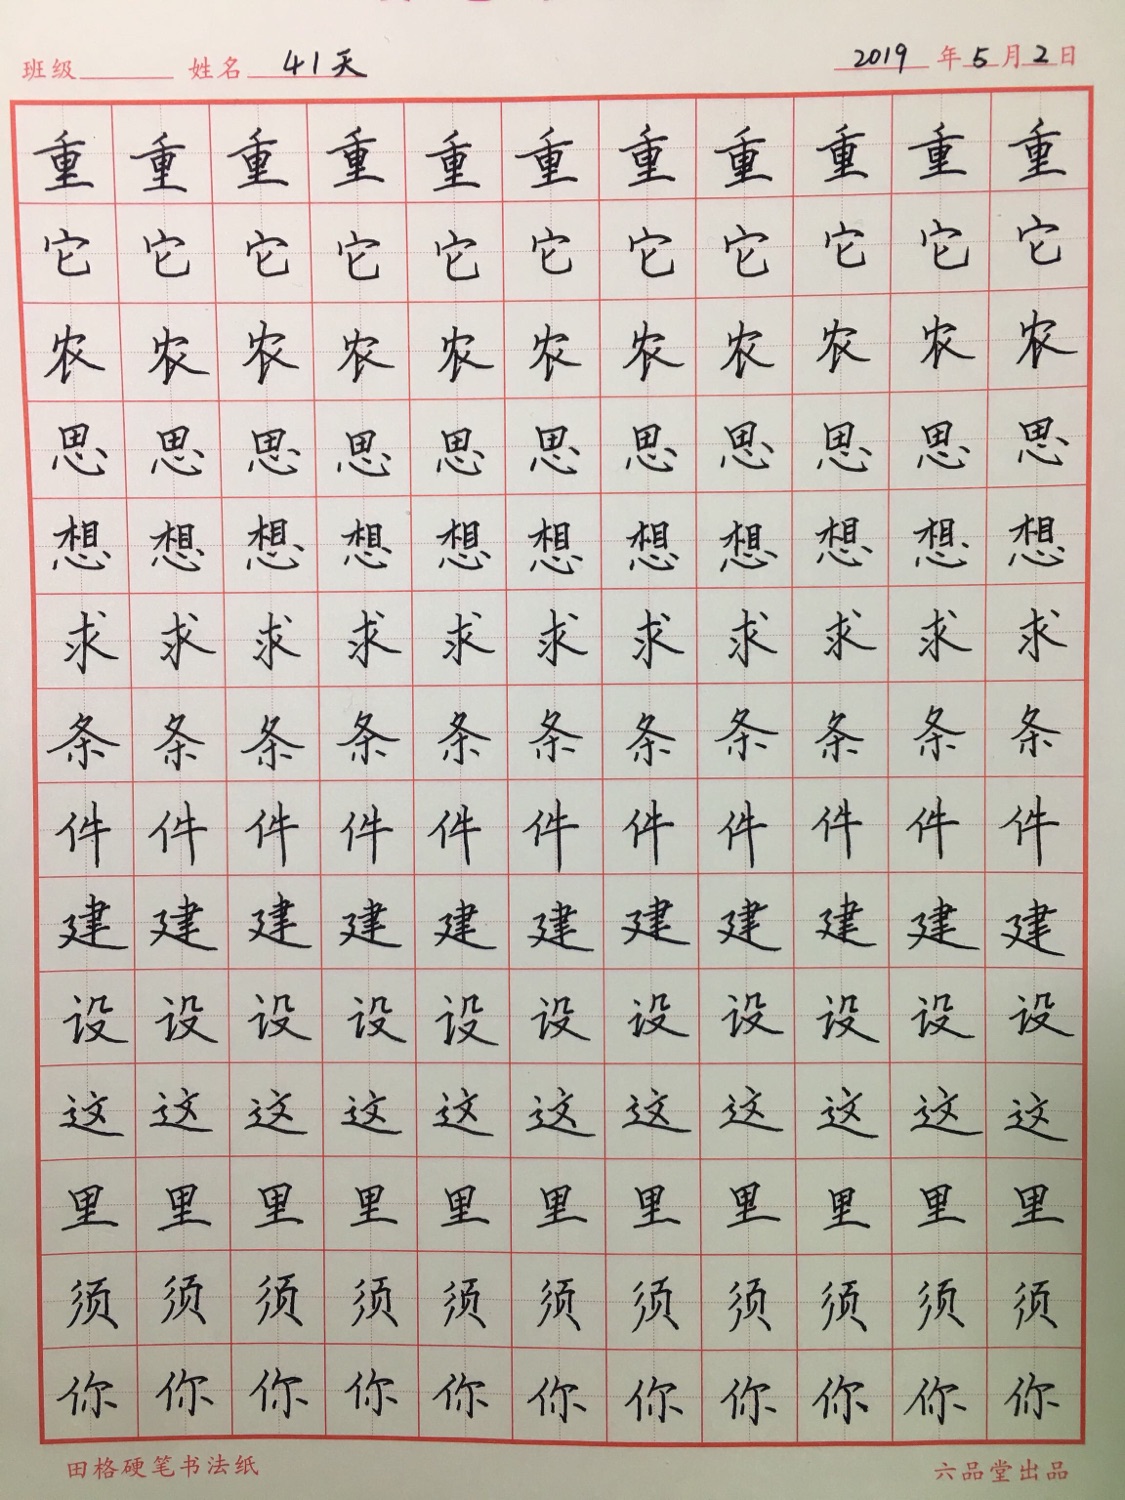 班级 姓名 41天 2019年5月2日
重重重重重重重重重重重
它它它它它它它它它它它
农农农农农农农农农农农
思思思思思思思思思思思
想想想想想想想想想想想
求求求求求求求求求求求
条条条条条条条条条条条
件件件件件件件件件件件
建建建建建建建建建建建
设设设设设设设设设设设
这这这这这这这这这这这
里里里里里里里里里里里
须须须须须须须须须须须
你你你你你你你你你你你
田格硬笔书法纸 六品堂出品